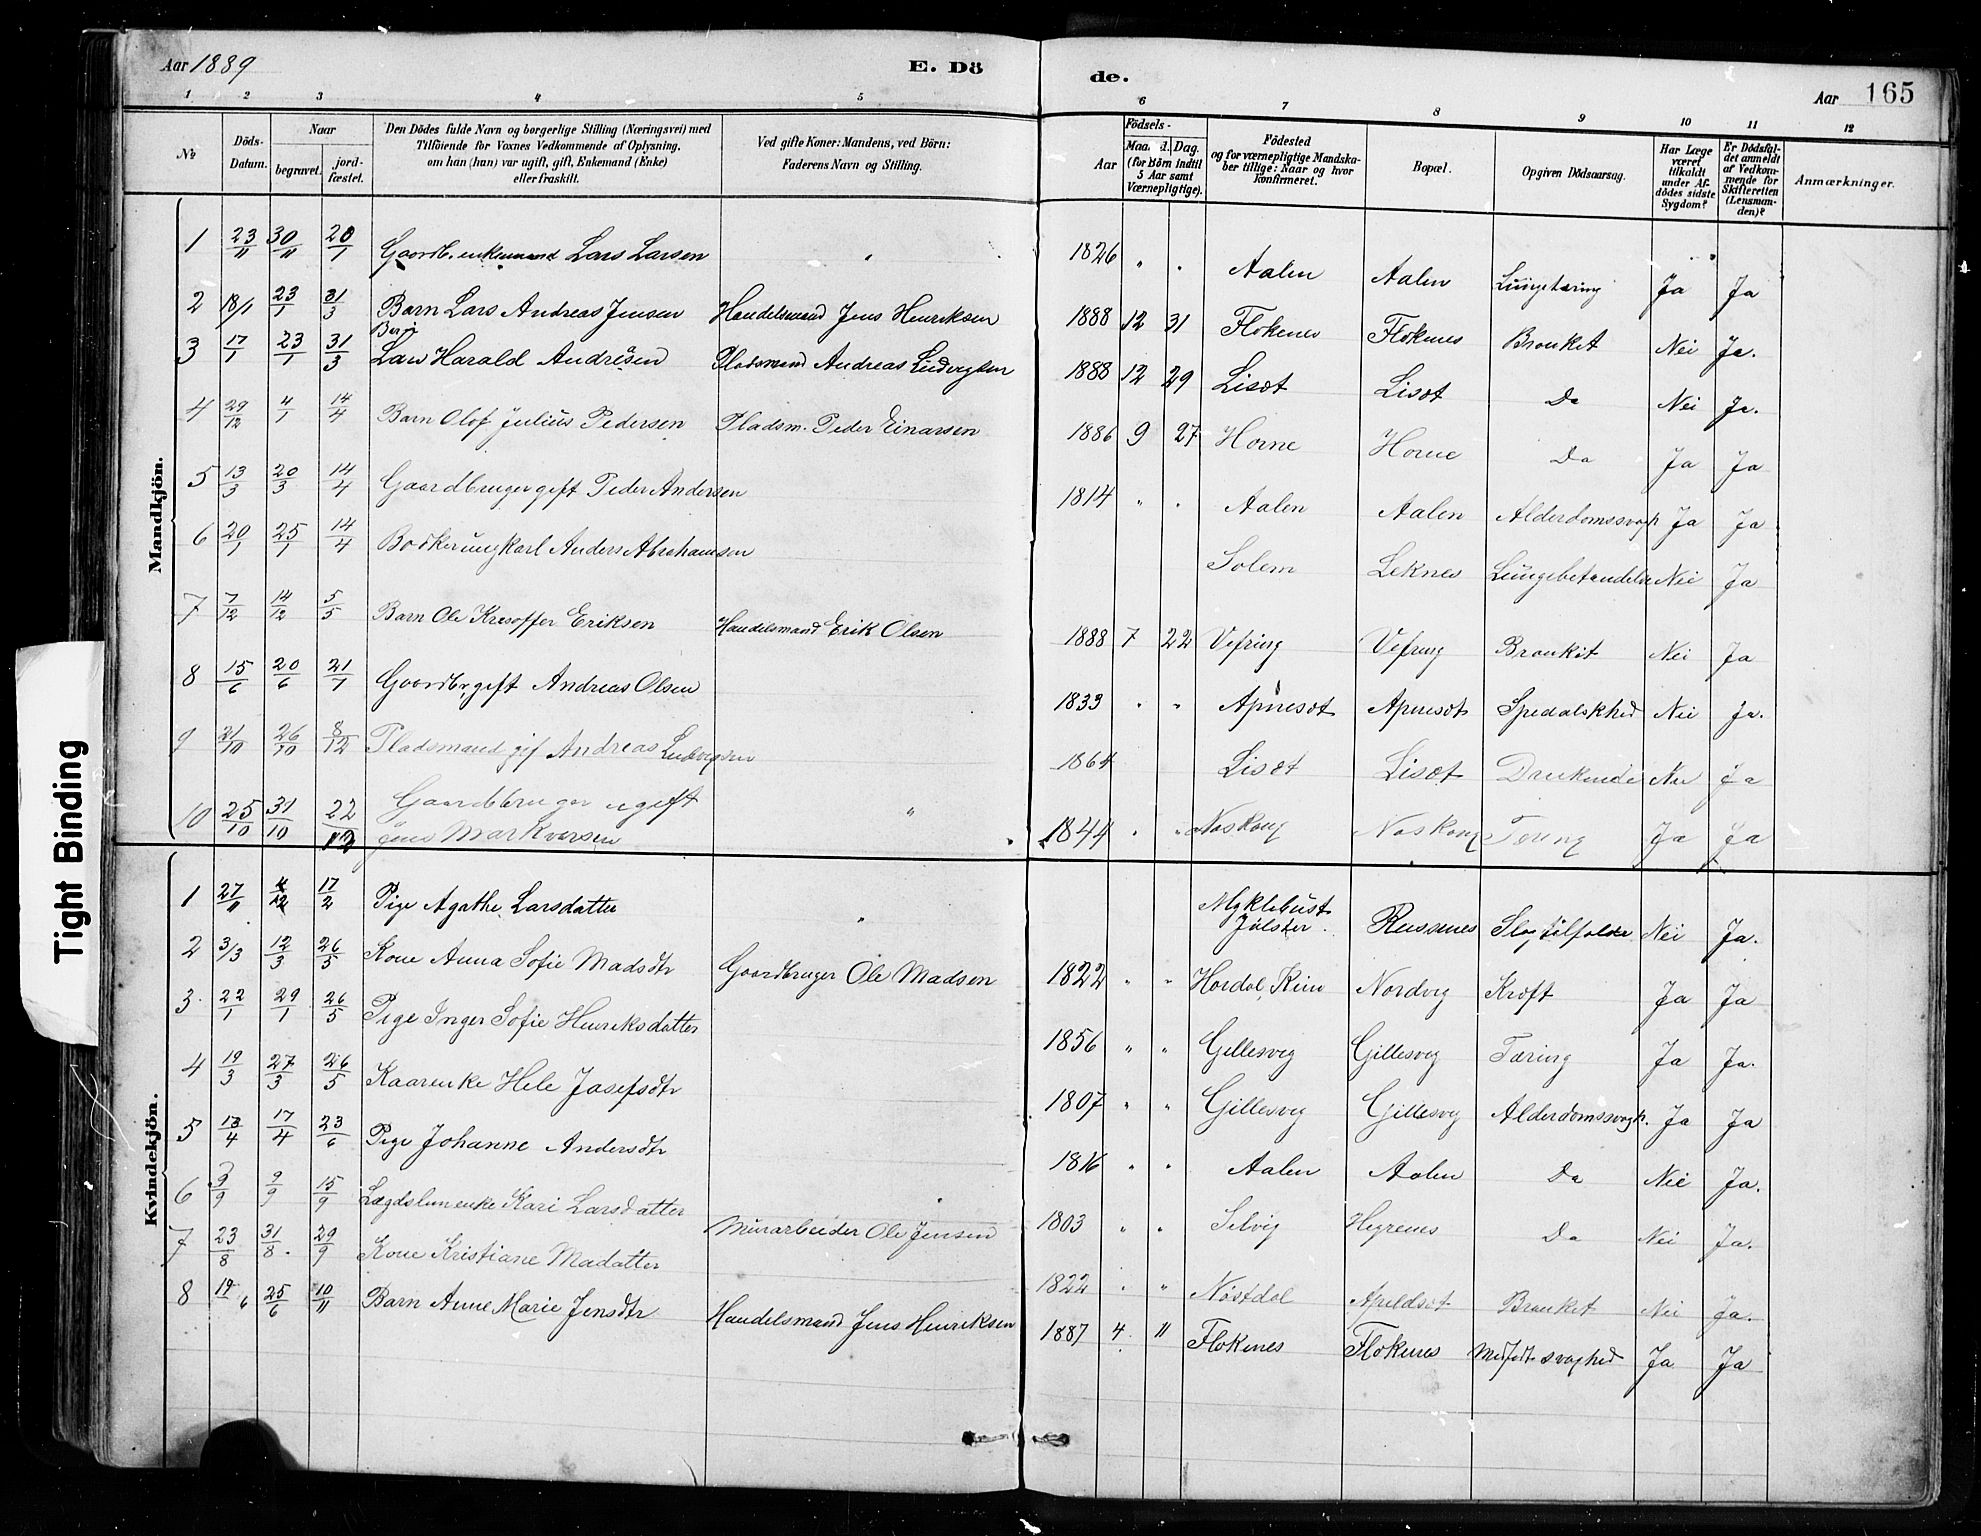 Aar 1889 E. Dö de. Aar 165
1 2 3 4 5 6 7 8 9 10 11 12
№ Döds-Datum. Naar begravet. jordfæstet. Den Dödes fulde Navn og borgerlige Stilling (Næringsvei) med Tilföiende for Voxnes Vedkommende af Oplysning, om han (hun) var ugift, gift, Enkemand (Enke) eller fraskilt. Ved gifte Koner: Mandens, ved Börn: Faderens Navn og Stilling. Födsels- Aar Maaned. Dag. (for Börn indtil 5 Aar samt Værnepligtige). Födested og for værnepligtige Mandskaber tillige: Naar og hvor konfirmeret. Bopæl. Opgiven Dödsaarsag. Har Læge været tilkaldt under Afdödes sidste Sygdom? Er Dödsfaldet anmeldt af Vedkommende for Skifteretten (Lensmanden)? Anmærkninger.
Mandkjön.
1 23/11 30/11 20/1 Gaardb. enkemand Lars Larsen " 1826 " " Aalen Aalen Lungetæring Ja Ja
2 18/1 23/1 31/3 Barn Lars Andreas Jensen Handelsmand Jens Henriksen 1888 12 31 Flokenes Flokenes Bronket Nei Ja.
3 17/1 23/1 31/3 Barn Lars Harald Andresen Pladsmand Andreas Ludvigsen 1888 12 29 Lisöt Lisöt Do Nei Ja.
4 29/12 4/1 14/4 Barn Olof Julius Pedersen Pladsm. Peder Einarsen 1886 9 27 Horne Horne Do Ja Ja
5 13/3 20/3 14/4 Gaardbruger gift Peder Andersen 1814 " " Aalen Aalen Alderdomssvagh Ja Ja
6 20/1 25/1 14/4 Bödker ungkarl Anders Abrahamsen Solem Leknes Nei Ja
7 7/12 14/12 5/5 Barn Ole Eriksen Handelsmand Erik Olsen 1888 7 22 Vefring Vefring Bronkit Nei Ja
8 15/6 20/6 21/7 Gaardbr. gift Andreas Olsen 1833 " " Apnesöt Apnesöt Spedalskhed Nei Ja.
9 21/10 26/10 8/12 Pladsmand gif Andreas Ludvigsen 1864 Lisöt Lisöt Nei Ja
10 25/10 31/10 22/12 Gaardbruger ugift Jens Markvarsen " 1844 " " Naskong Naskong Tæring Ja Ja
Kvindekjön.
1 27/11 4/12 17/2 Pige Agathe Larsdatter " Myklebust Jölster. Russenes Slagtilfælde Nei Ja.
2 3/3 12/3 26/5 Kone Anna Sofie Madsdtr Gaardbruger Ole Madsen 1822 " " Hordal, Nordvig Kræft Ja Ja
3. 22/1 29/1 26/5 Pige Inger Sofie Henriksdatter 1856 " " Gillesvig Gillesvig Tæring Ja Ja.
4 19/3 27/3 26/5 Kaarenke Hele Josefsdtr 1807 " " Gillesvig Gillesvig Alderdomssvagh. Ja Ja
5 13/4 17/4 23/6 Pige Johanne Andersdtr 1816 " " Aalen Aalen Do Nei Ja.
6 3/9 9/9 15/9 Lægdslem enke Kari Larsdatter " 1803 " " Selvig Hegrenes Do Nei Ja.
7 23/8 31/8. 29/9 Kone Kristiane Madatter Murarbeider Ole Jensen 1822 " " Nöstdal Apeldsöt Bronket Nei Ja.
8 19/6 25/6 10/11 Barn Anne Marie Jensdtr Handelsmand Jens Henriksen 1887 4. 11 Flokenes Flokenes Medfødt svaghed Ja Ja
Tight Binding